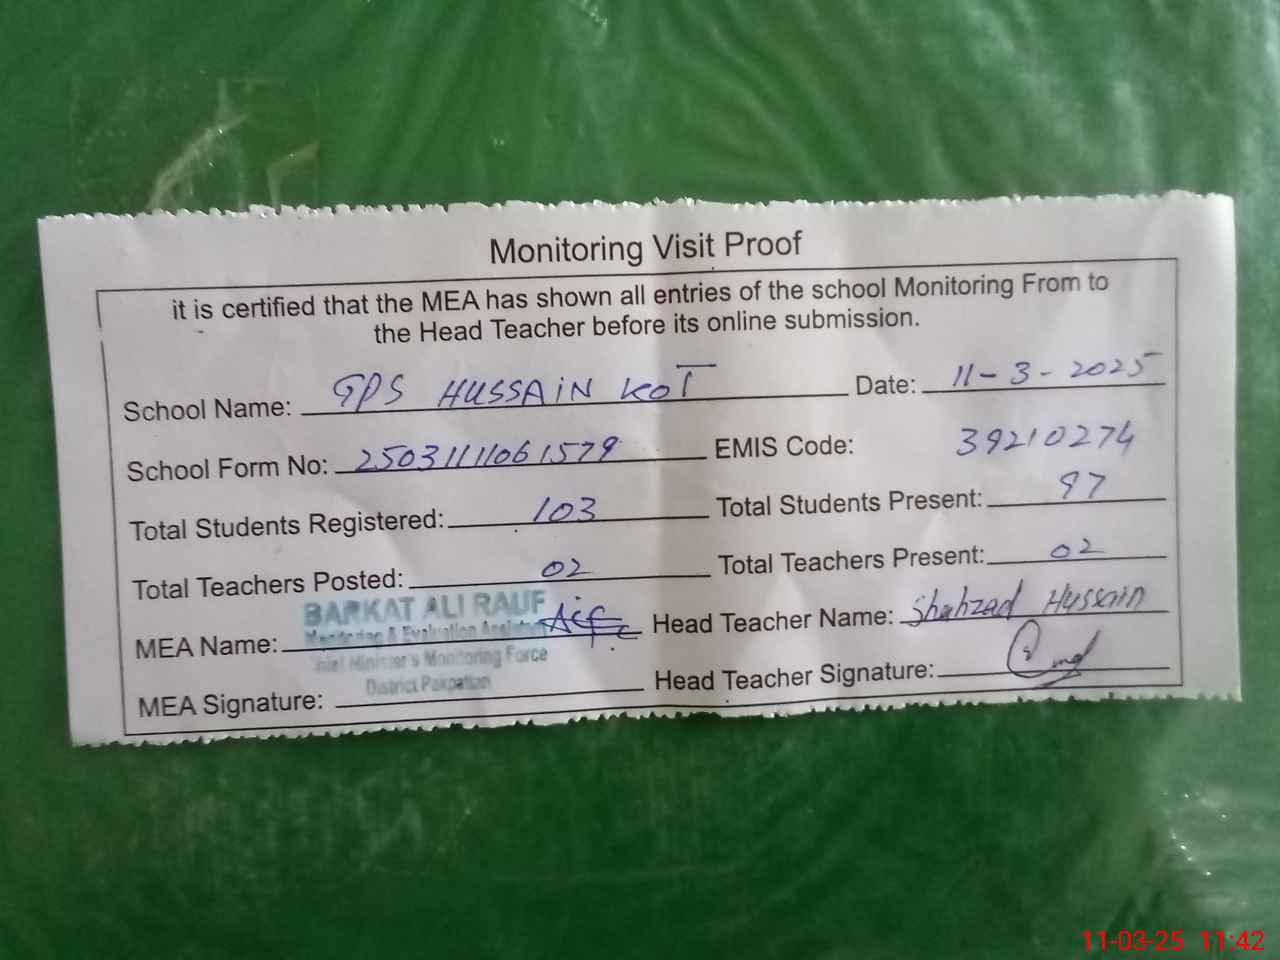 Monitoring Visit Proof
it is certified that the MEA has shown all entries of the school Monitoring From to
the Head Teacher before its online submission.
School Name: GPS HUSSAIN KOT Date: 11-3-2025
School Form No: 25031111061579 EMIS Code: 39210274
Total Students Registered: 103 Total Students Present: 97
Total Teachers Posted: 02 Total Teachers Present: 02
BARKAT ALI RAUF
Monitoring & Evaluation Assistant
MEA Name: Head Teacher Name: Shahzad Hussain
Chief Minister's Monitoring Force
District Pakpattan
MEA Signature: Head Teacher Signature:
11-03-25 11:42